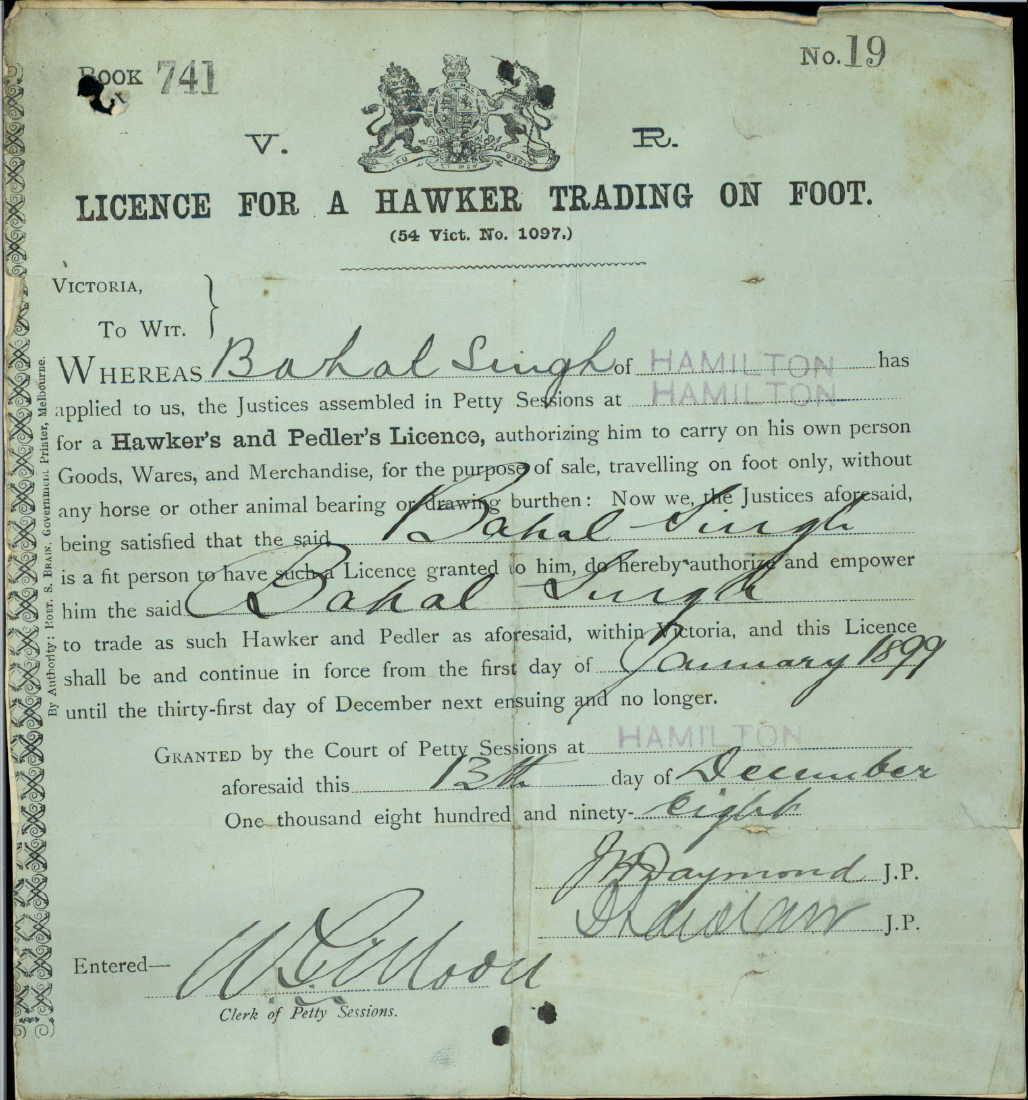 BOOK 741
No. 19
V. R.
LICENCE FOR A HAWKER TRADING ON FOOT.
(54 Vict. No. 1097.)
VICTORIA,
TO WIT.
WHEREAS Bahal Singh of HAMILTON has
applied to us, the Justices assembled in Petty Sessions at HAMILTON
for a Hawker's and Pedler's Licence, authorizing him to carry on his own person
Goods, Wares, and Merchandise, for the purpose of sale, travelling on foot only, without
any horse or other animal bearing or drawing burthen: Now we, the Justices aforesaid,
being satisfied that the said Bahal Singh
is a fit person to have such a Licence granted to him, do hereby authorize and empower
him the said Bahal Singh
to trade as such Hawker and Pedler as aforesaid, within Victoria, and this Licence
shall be and continue in force from the first day of January 1899
until the thirty-first day of December next ensuing and no longer.
GRANTED by the Court of Petty Sessions at HAMILTON
aforesaid this 13th day of December
One thousand eight hundred and ninety- eight
Raymond J.P.
J.P.
Entered— Moon
Clerk of Petty Sessions.
By Authority: ROBT. S. BRAIN, Government Printer, Melbourne.